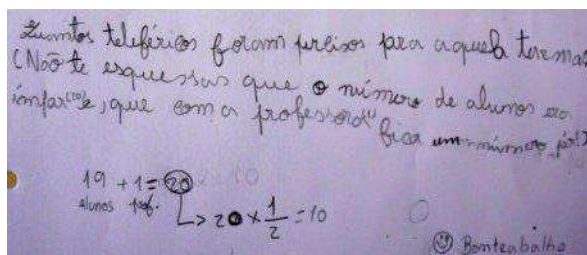 Quantos teleféricos foram precisos para aquela turma?
(Não te esquessas que o número de alunos era
ímpar (19) e, que com a professora fica um número pár!)
19 + 1 = 20
alunos prof.
20 × 1/2 = 10
Bom trabalho